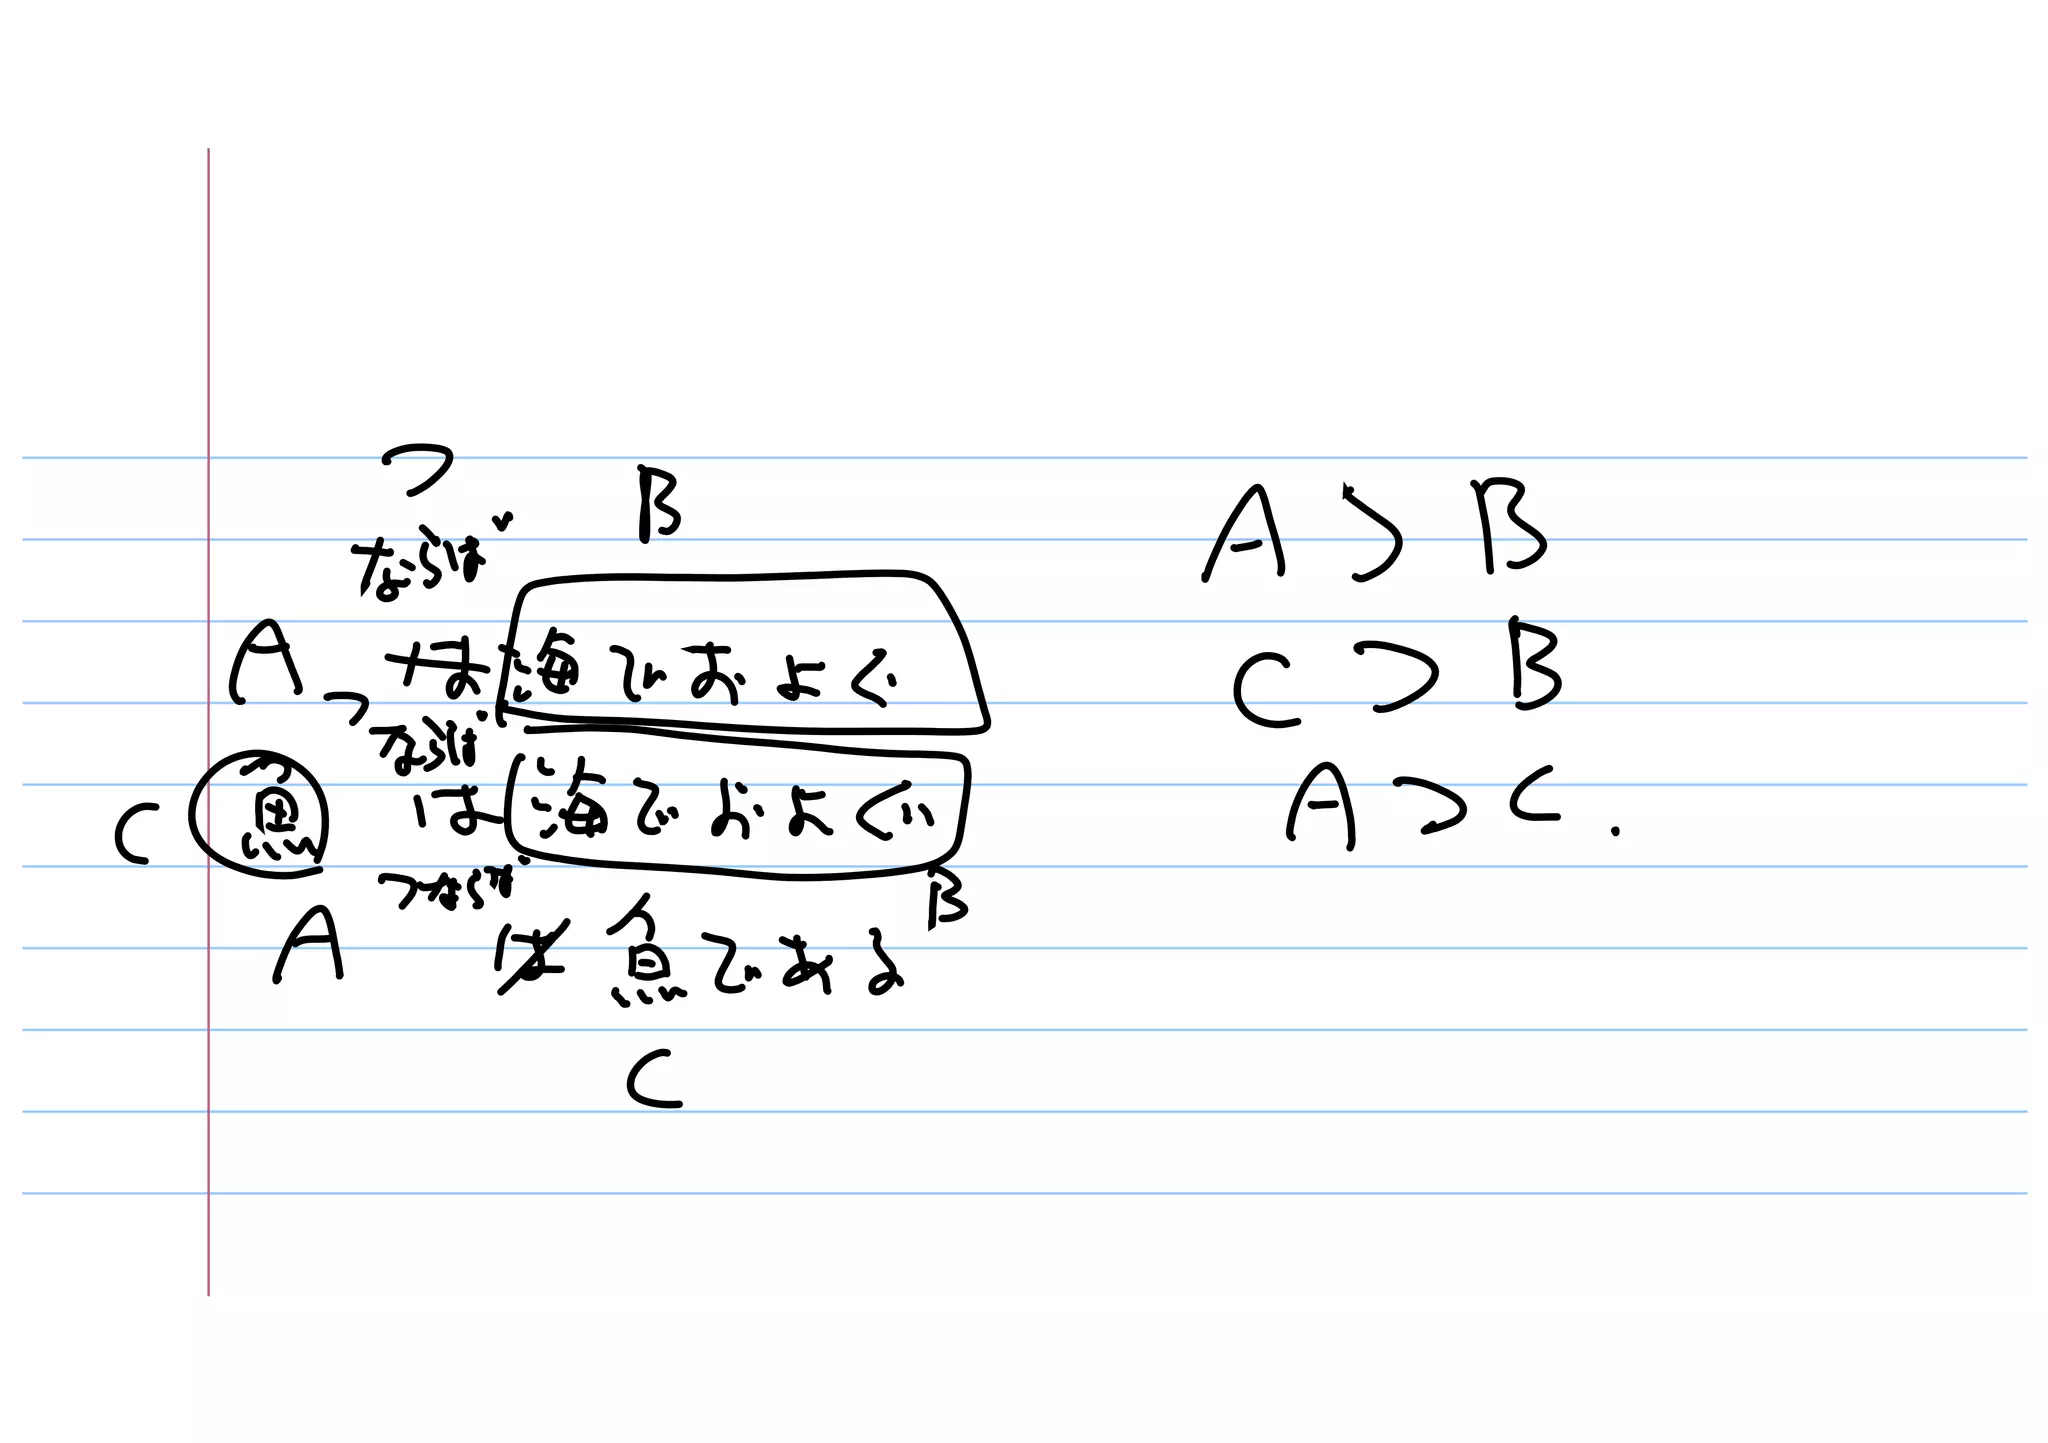 ⊃ B
ならば
A は 海でおよぐ
⊃ ならば
C 魚 は 海でおよぐ
⊃ならば B
A は 魚である
C
A ⊃ B
C ⊃ B
A ⊃ C.